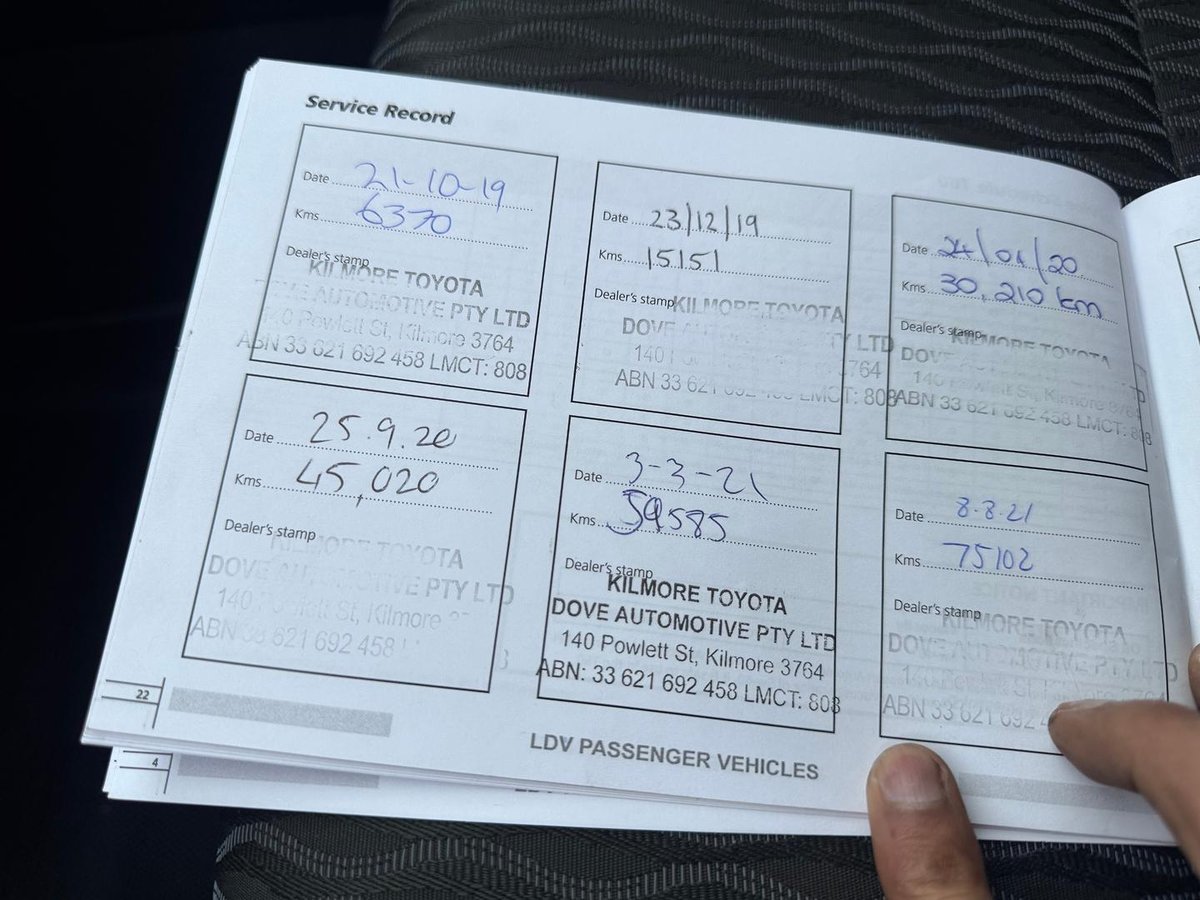 Service Record
Date 21-10-19
Kms. 6370
Dealer's stamp
KILMORE TOYOTA
DOVE AUTOMOTIVE PTY LTD
140 Powlett St, Kilmore 3764
ABN 33 621 692 458 LMCT: 808
Date 23/12/19
Kms 15151
Dealer's stamp
KILMORE TOYOTA
DOVE TY LTD
140 3764
ABN 33 621 692 458 LMCT: 808
Date
Kms. 30,210 km
Dealer's stamp
KILMORE TOYOTA
DOVE
Kilmore 3764
ABN 33 621 692 458 LMCT: 808
Date 25.9.20
Kms. 45,020
Dealer's stamp
KILMORE TOYOTA
DOVE AUTOMOTIVE PTY LTD
140 Powlett St, Kilmore
ABN 33 621 692 458
Date 3-3-21
Kms. 59585
Dealer's stamp
KILMORE TOYOTA
DOVE AUTOMOTIVE PTY LTD
140 Powlett St, Kilmore 3764
ABN: 33 621 692 458 LMCT: 808
Date 8.8.21
Kms. 75102
Dealer's stamp
KILMORE TOYOTA
DOVE AUTOMOTIVE PTY LTD
ABN 33 621 692
22
LDV PASSENGER VEHICLES
4